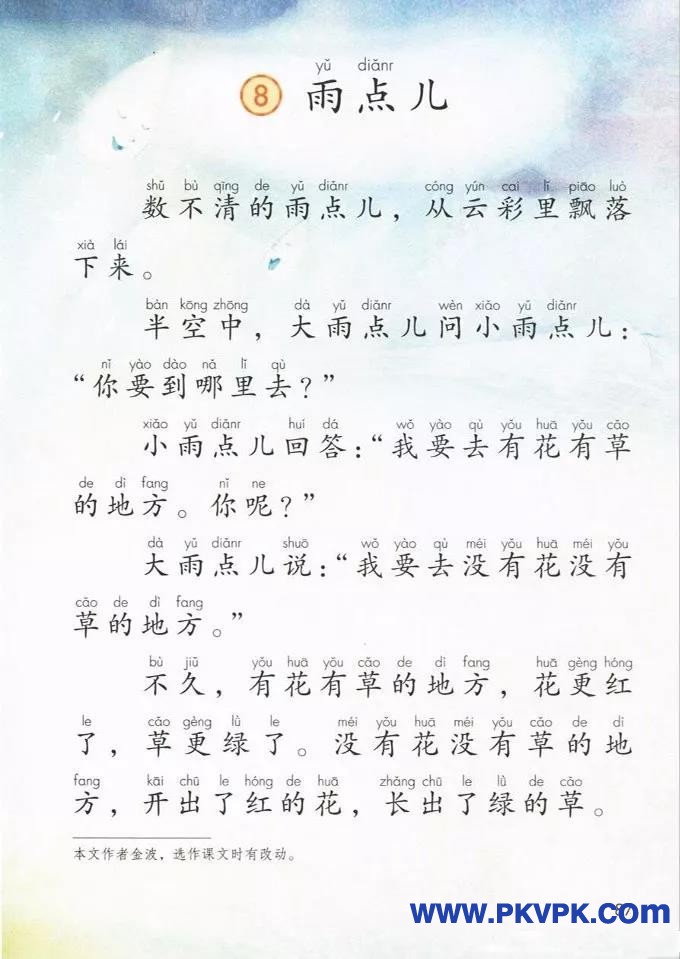 yǔ diǎnr
8 雨点儿
shǔ bù qīng de yǔ diǎnr cóng yún cai lǐ piāo luò
数不清的雨点儿，从云彩里飘落
xià lái
下来。
bàn kōng zhōng dà yǔ diǎnr wèn xiǎo yǔ diǎnr
半空中，大雨点儿问小雨点儿：
nǐ yào dào nǎ lǐ qù
“你要到哪里去？”
xiǎo yǔ diǎnr huí dá wǒ yào qù yǒu huā yǒu cǎo
小雨点儿回答：“我要去有花有草
de dì fang nǐ ne
的地方。你呢？”
dà yǔ diǎnr shuō wǒ yào qù méi yǒu huā méi yǒu
大雨点儿说：“我要去没有花没有
cǎo de dì fang
草的地方。”
bù jiǔ yǒu huā yǒu cǎo de dì fang huā gèng hóng
不久，有花有草的地方，花更红
le cǎo gèng lǜ le méi yǒu huā méi yǒu cǎo de dì
了，草更绿了。没有花没有草的地
fang kāi chū le hóng de huā zhǎng chū le lǜ de cǎo
方，开出了红的花，长出了绿的草。
本文作者金波，选作课文时有改动。
www.PKVPK.com